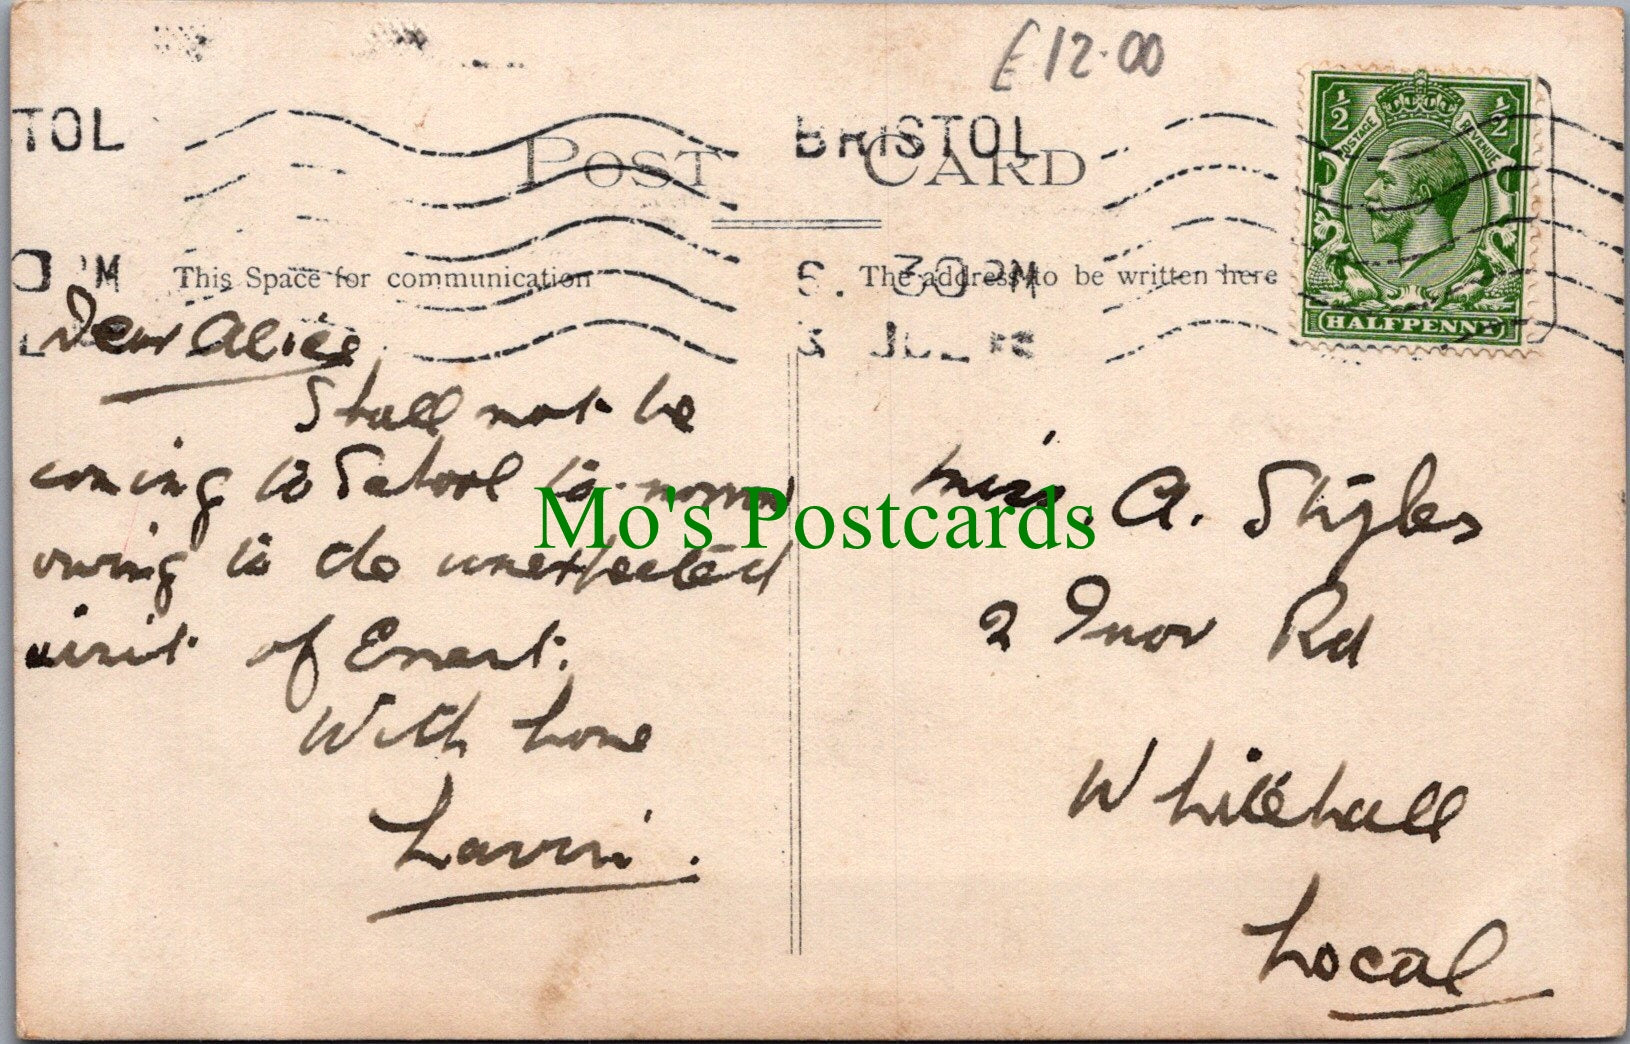 £12.00
TOL
BRISTOL
POST CARD
½ ½
POSTAGE REVENUE
HALFPENNY
This Space for communication
The address to be written here
30 PM
JUL
Dear Alice
Shall not be
coming to School to-morrow
owing to the unexpected
visit of Ernest.
With Love
Miss. A. Styles
2 Rd
Whitehall
Local
Mo's Postcards